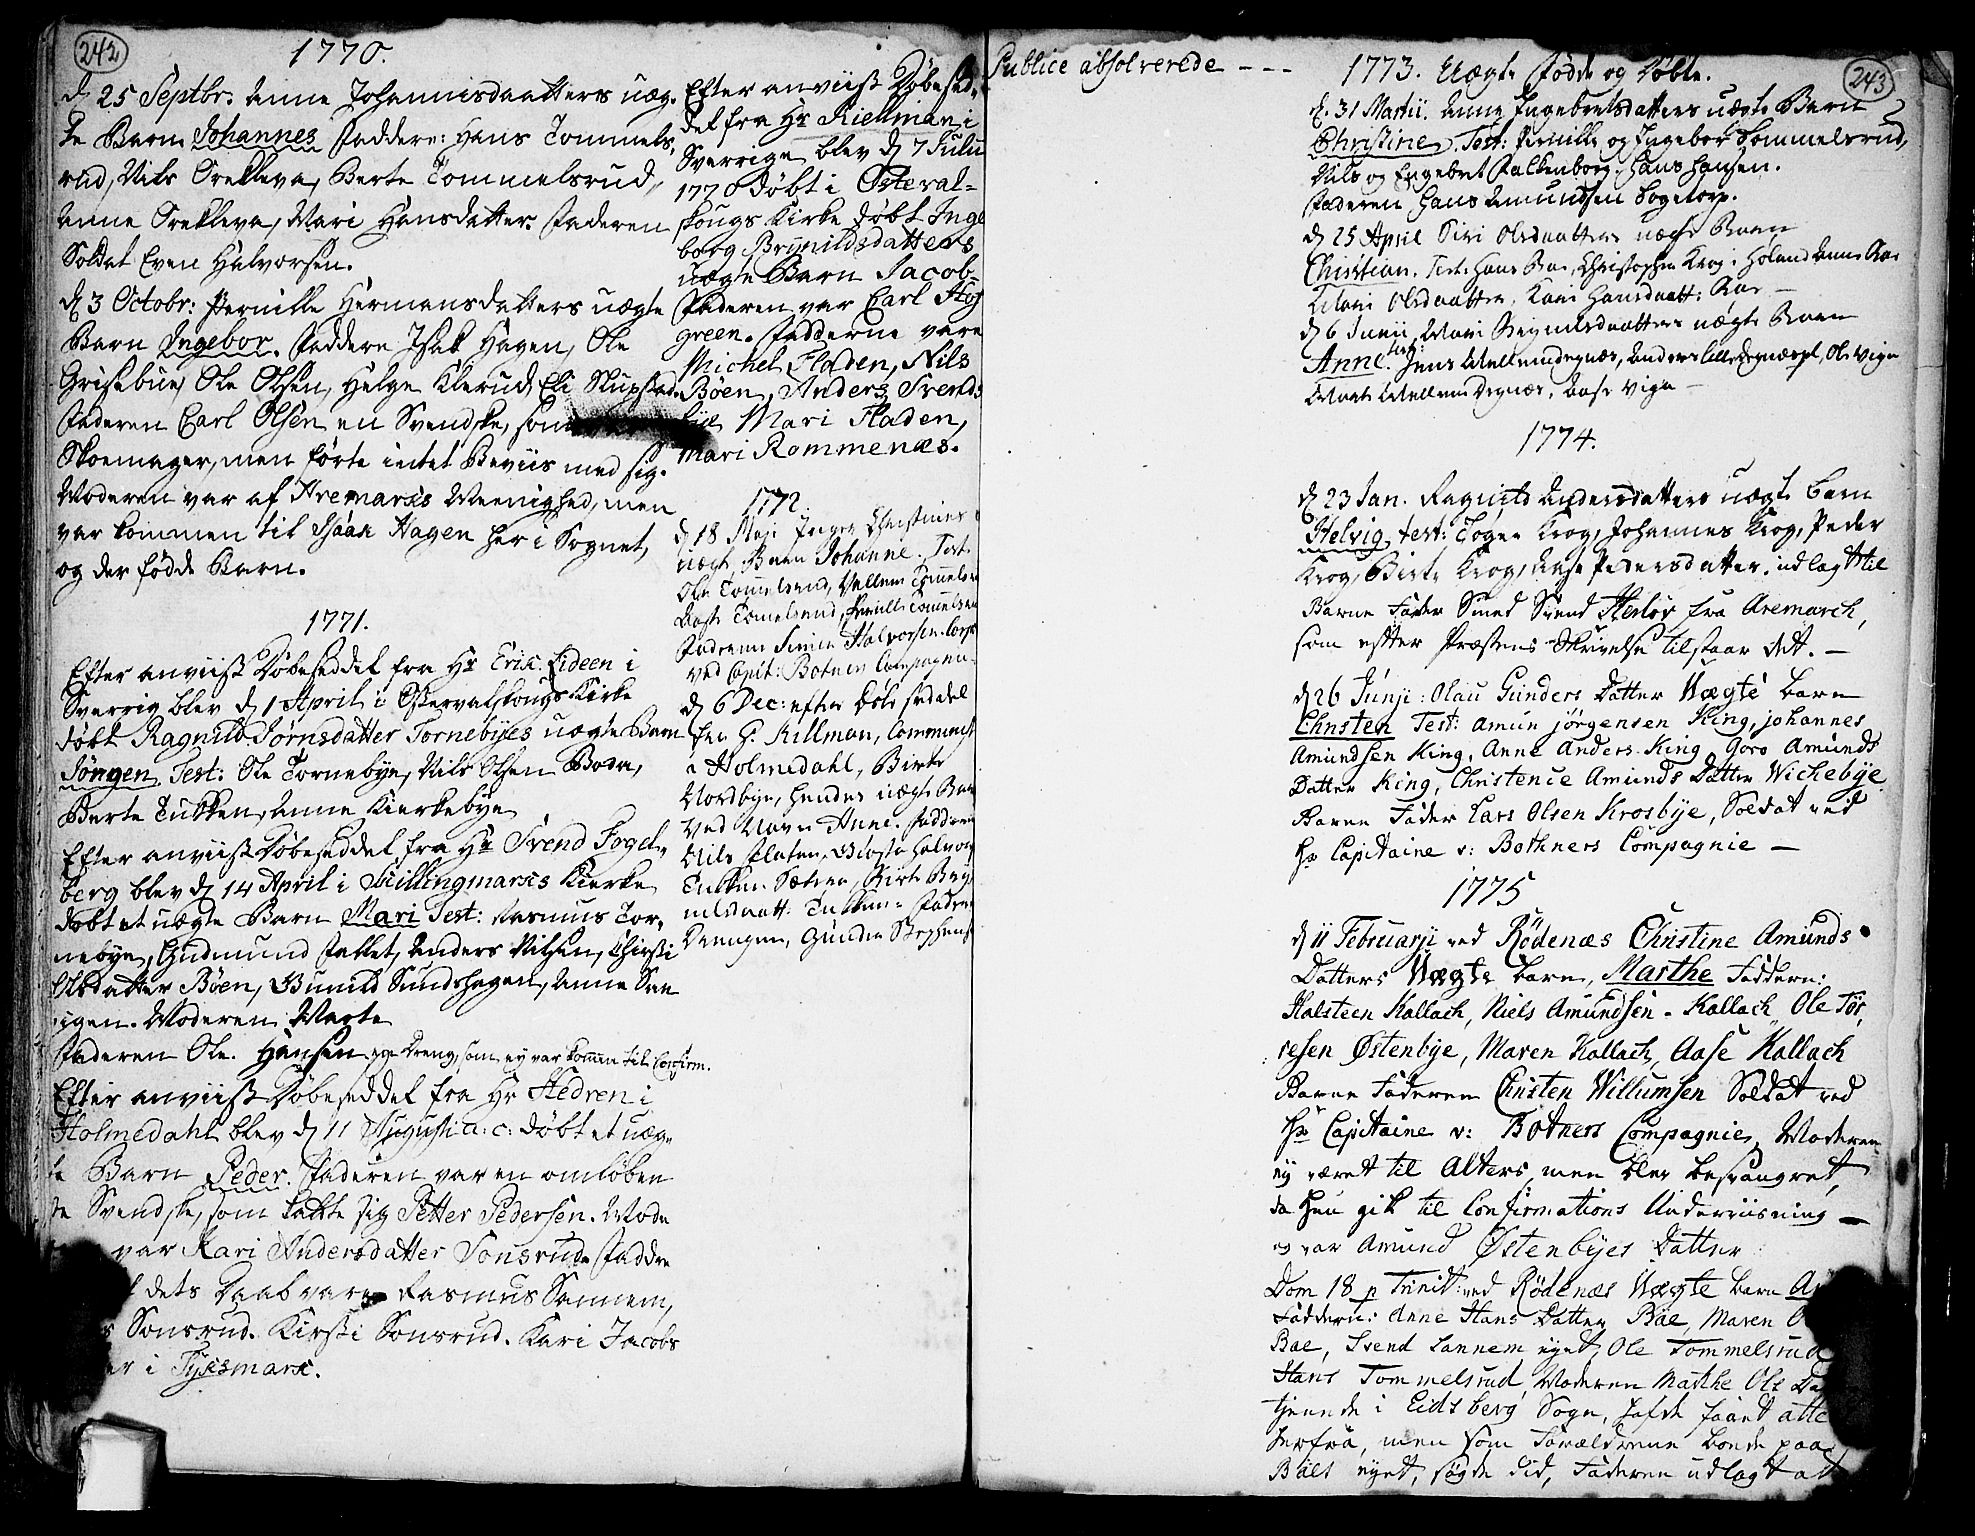 242
1770.
d 25 Septbr. Anne Johannisdaatters uæg-
te Barn Johannes Faddere: Hans Tommels,
rud, Nils Orekleva, Berte Tommelsrud,
Anne Orekleva, Mari Hansdatter. Faderen
Soldat Even Halvorsen.
d 3 Octobr: Pernille Hermansdatters uægte
Barn Ingebor. Faddere Isak Hagen, Ole
Grisebue, Ole Olsen, Helge Klerud, Eli Slupstad.
Faderen Carl Olsen en Svendske, som
Skoemager, men førte intet Beviis med sig.
Moderen var af Aremarks Meenighed, men
var kommen til Isaak Hagen her i Sognet,
og der fødde Barn.
1771.
Efter anviist Døbeseddel fra Hr Erik Eideen i
Sverrig blev d 1 April i Østervalskougs Kirke
døbt Ragnild Jørnsdatter Tornebyes uægte Barn
Jöngen. Test: Ole Tornebye, Nils Olsen Boda,
Berte Tukken, Anne Kierkebye
Efter anviist Døbeseddel fra Hr Svend Fogel-
berg blev d 14 April i Skillingmarks Kierke
døbt et uægte Barn Mari Test: Rasmus Tor-
nebye, Gudmund Fallet, Anders Nilsen, Chirsti
Olsdatter Böen, Gunild Sundshagen, Anne San
igen. Moderen Marte
Faderen Ole Hansen en Dreng, som ey var kommen til Confirm.
Efter anviist Døbeseddel fra Hr Hedren i
Holmedahl blev d 11 Augusti a: c: døbt et uæg-
te Barn Peder. Faderen var en omløben
de Svendske, som kaldte sig Petter Pedersen. Mode
var Kari Andersdatter Sonsrud. Faddre
dets Daab vare Rasmus Sannem,
Sonsrud. Kirsti Sonsrud. Kari Jacobs
er i Tyksmark.
Efter anviist Døbesed-
del fra Hr Kiellman i
Sverrige blev d 7 Julii
1770 døbt i Österval-
skougs Kirke døbt Inge
borg Brynildsdatters
uægte Barn Jacob-
Faderen var Carl Hög
green. Fadderne vare
Michel Fladen, Nils
Böen, Anders Svends
bye Mari Fladen,
Mari Rommenæs.
1772.
d 18 Maji Inger Christines
uægte Barn Johanne. Test
Ole Tommelsrud, Vellem Tommelsru
Aase Tommelsrud, Pernille Tommelsru
Faderen Simen Halvorsen Corp
ved Capit: Botners Compagnie.
d 6 Dec: efter Døbeseddel
fra H. Killman, Comminist
i Holmedahl, Birte
Nordbye, hendes uægte Barn
ved Navn Anne. Faddere
Nils Flaten, Halvor
Tukken Sætren, Birte Bryn
nildsdaatt: Tukken. Fader
Drengen, Gunder Stephens
Publice absolverede - - -
243
1773. Uægte fødde og døbte.
d. 31 Martii. Anne Ingebretsdatters uægte Barn
Christine. Test: Pernille og Ingebor Tommelsrud,
Nils og Engebret Falkenborg. Hans Hansen.
Faderen Hans Amundsen Bogetorp.
d 25 April Siri Olsdaatters uægte Barn
Christian. Test: Hans Bae, Christopher Krog i Høland Anne Bae
Mari Olsdaatter, Kari Hansdaatt: Bae —
d 6 Junii Mari Reynilsdaatters uægte Barn
Anne. Jens Mellemdegnæs, Anders Lilledegnæspl, Ole Vigen
Marte Mellemdegnæs, Aase Vigen —
1774.
d 23 Jan. Ragnild Andersdatters uægte barn
Helvig, test: Tøger Krog, Johannes Krog, Peder
Krog, Birte Krog, Aase Pedersdatter. udlagt til
Barne Fader Smed Svend Hersløv fra Aremarch,
som efter Præstens Skrivelse tilstaar det. —
d 26 Junji: Olau Gunders Datter Uægte barn
Christen Test: Amun Jörgensen King, Johannes
Amundsen King, Anne Anders. King Goro Amunds
Datter King, Christence Amunds Datter Wichebye.
Barne Fader Lars Olsen Krosbye, Soldat ved
Hr Capitaine v: Bothners Compagnie —
1775
d 11 Februarji ved Rödenæs Christine Amunds
Datters Uægte barn, Marthe Faddern:
Halsteen Kallach, Niels Amundsen - Kallach Ole Tör,
resen Østenbye, Maren Kallach, Aase Kallach
Barne Faderen Christen Willumsen Soldat ved
Hr Capitaine v: Botners Compagnie, Moderen
ey været til Alters, men blev besvangret,
da hun gik til Confirmations Underviisning —
og var Amund Østenbyes Datter
Dom 18 p Trinit: ved Rödenæs Uægte barn A
Faddern: Anne Hans Datter Bae, Maren O
Bae, Svend Sannem eyet, Ole Tommelsrud
Hans Tommelsrud, Moderen Marthe Ols Da
tjennde i Eidsberg Sogn, hafde faaet atte
herfra, men som Forældrene boende paa
Baes eyet, søgte did, Faderen udlagt at